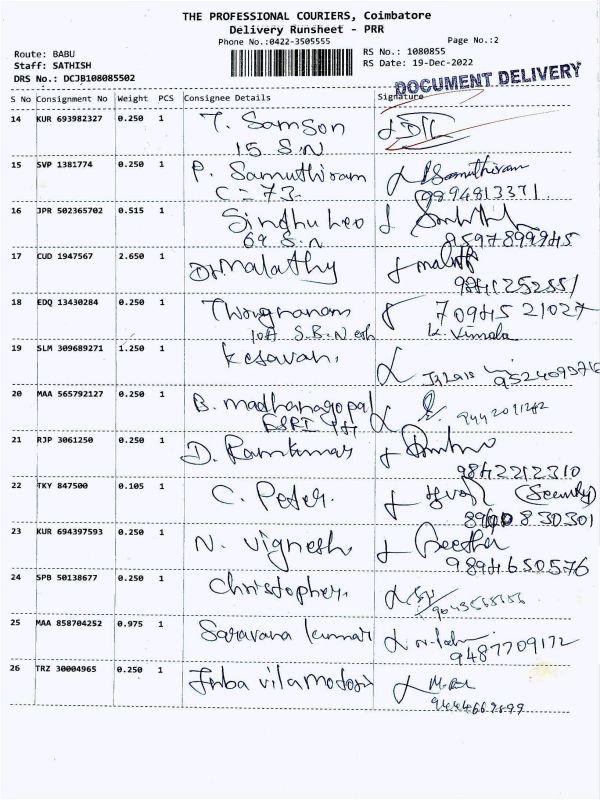 THE PROFESSIONAL COURIERS, Coimbatore
Delivery Runsheet - PRR
Phone No.:0422-3505555 Page No.:2
Route: BABU RS No.: 1080855
Staff: SATHISH RS Date: 19-Dec-2022
DRS No.: DCJB108085502 DOCUMENT DELIVERY
S No Consignment No Weight PCS Consignee Details Signature
14 KUR 693982327 0.250 1 T. Samson
15 S.N
15 SVP 1381774 0.250 1 P. Samuthiram Samuthiram
C-73 9894813371
16 JPR 502365702 0.515 1 Sindhu Leo
69 S.N 8597899945
17 CUD 1947567 2.650 1 Dr. Malathy
9841252551
18 EDQ 13430284 0.250 1 70945 21027
10A K. Vimala
19 SLM 309689271 1.250 1 Kesavan.
20 MAA 565792127 0.250 1 B. Madhanagopal
21 RJP 3061250 0.250 1 D. Ramkumar
9842212310
22 TKY 847500 0.105 1 C. Peter. (Security)
830301
23 KUR 694397593 0.250 1 N. Vignesh
9894650576
24 SPB 50138677 0.250 1 Christopher.
25 MAA 858704252 0.975 1 Saravana Kumar
9487709172
26 TRZ 30004965 0.250 1